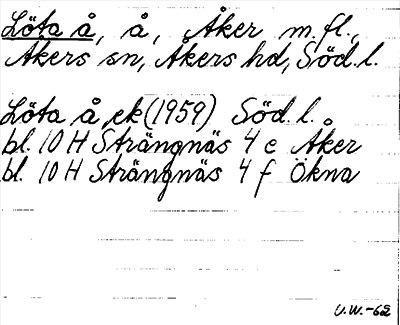 Löta å, å, Åker m.fl.,
Åkers sn, Åkers hd, Söd.l.
Löta å, ek (1959) Söd.l.
bl. 10 H Strängnäs 4 e Åker
bl. 10 H Strängnäs 4 f Ökna
U.W.-62